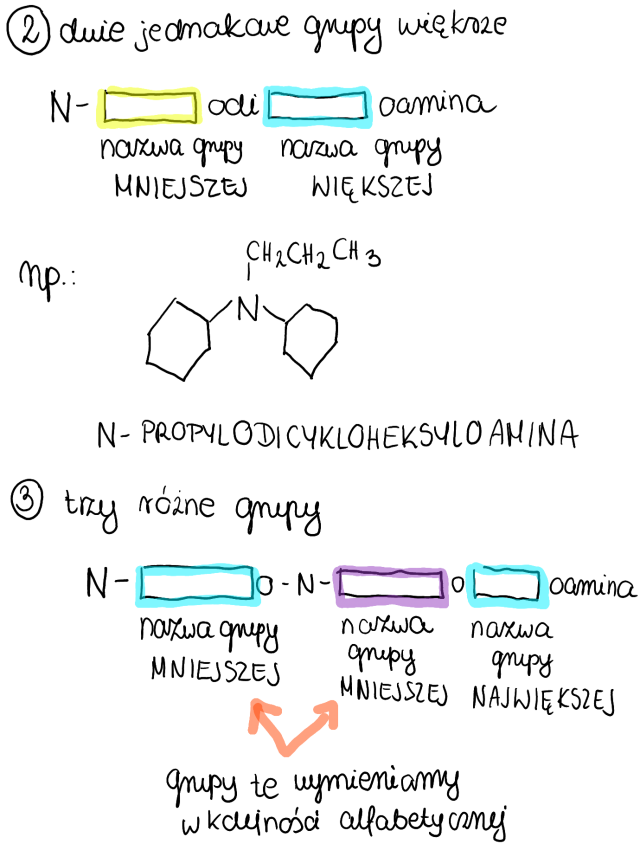 2 dwie jednakowe grupy większe
N- odi oamina
nazwa grupy nazwa grupy
MNIEJSZEJ WIĘKSZEJ
np.:
CH2CH2CH3
N
N- PROPYLODICYKLOHEKSYLOAMINA
3 trzy różne grupy
N- o-N- o oamina
nazwa grupy nazwa nazwa
MNIEJSZEJ grupy grupy
MNIEJSZEJ NAJWIĘKSZEJ
grupy te wymieniamy
w kolejności alfabetycznej